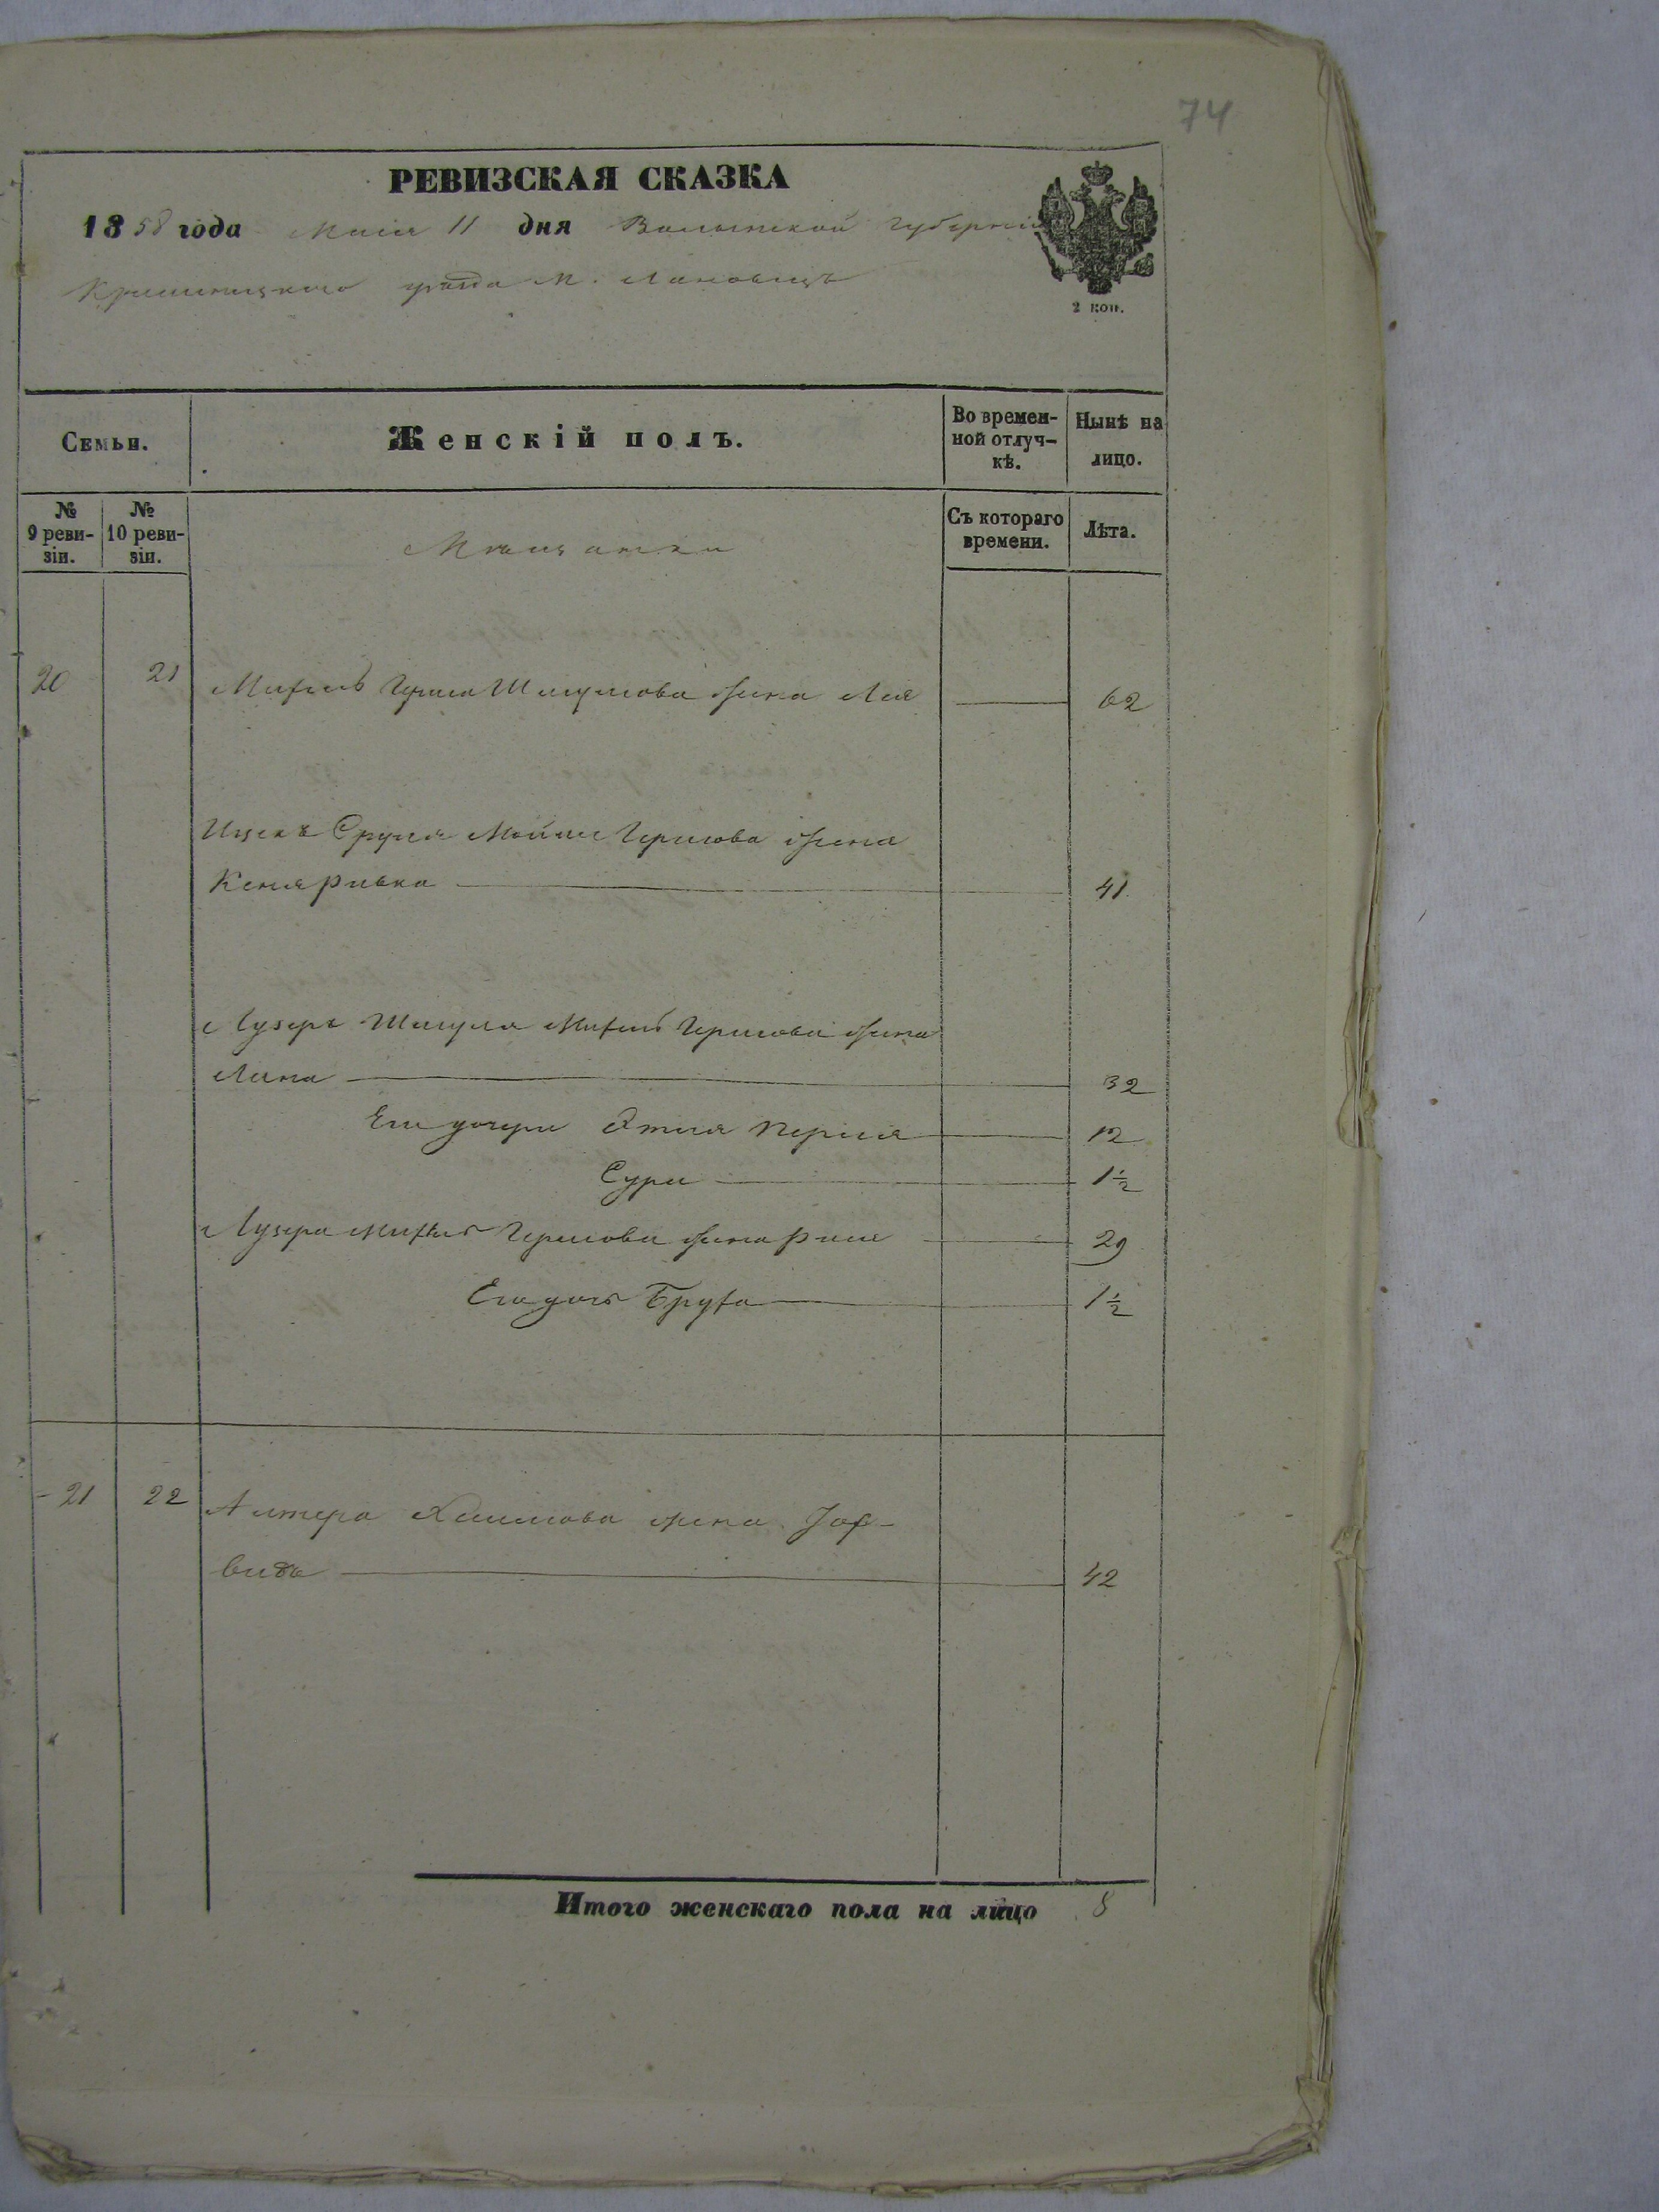 74
РЕВИЗСКАЯ СКАЗКА
1858 года Маія 11 дня Волынской Губерніи
Кременецкого уѣзда М. Лановецъ
2 коп.
Семьи.
Женскій полъ.
Во времен-
ной отлуч-
кѣ.
Нынѣ на
лицо.
№
9 реви-
зіи.
№
10 реви-
зіи.
Мѣщанки
Съ котораго
времени.
Лѣта.
20 21 Герша Шмулова жена Лея 62
Ицекъ Сруля Мошка Гершова жена
Кеня Ривка 41
Лузеръ Шмуля Гершова жена
Лана 32
Его дочери Этля Перля 12
Сура 1½
Лузера Гершова жена Рися 29
Его дочь Бруха 1½
21 22 Алтера Хаимова жена
42
Итого женскаго пола на лицо 8